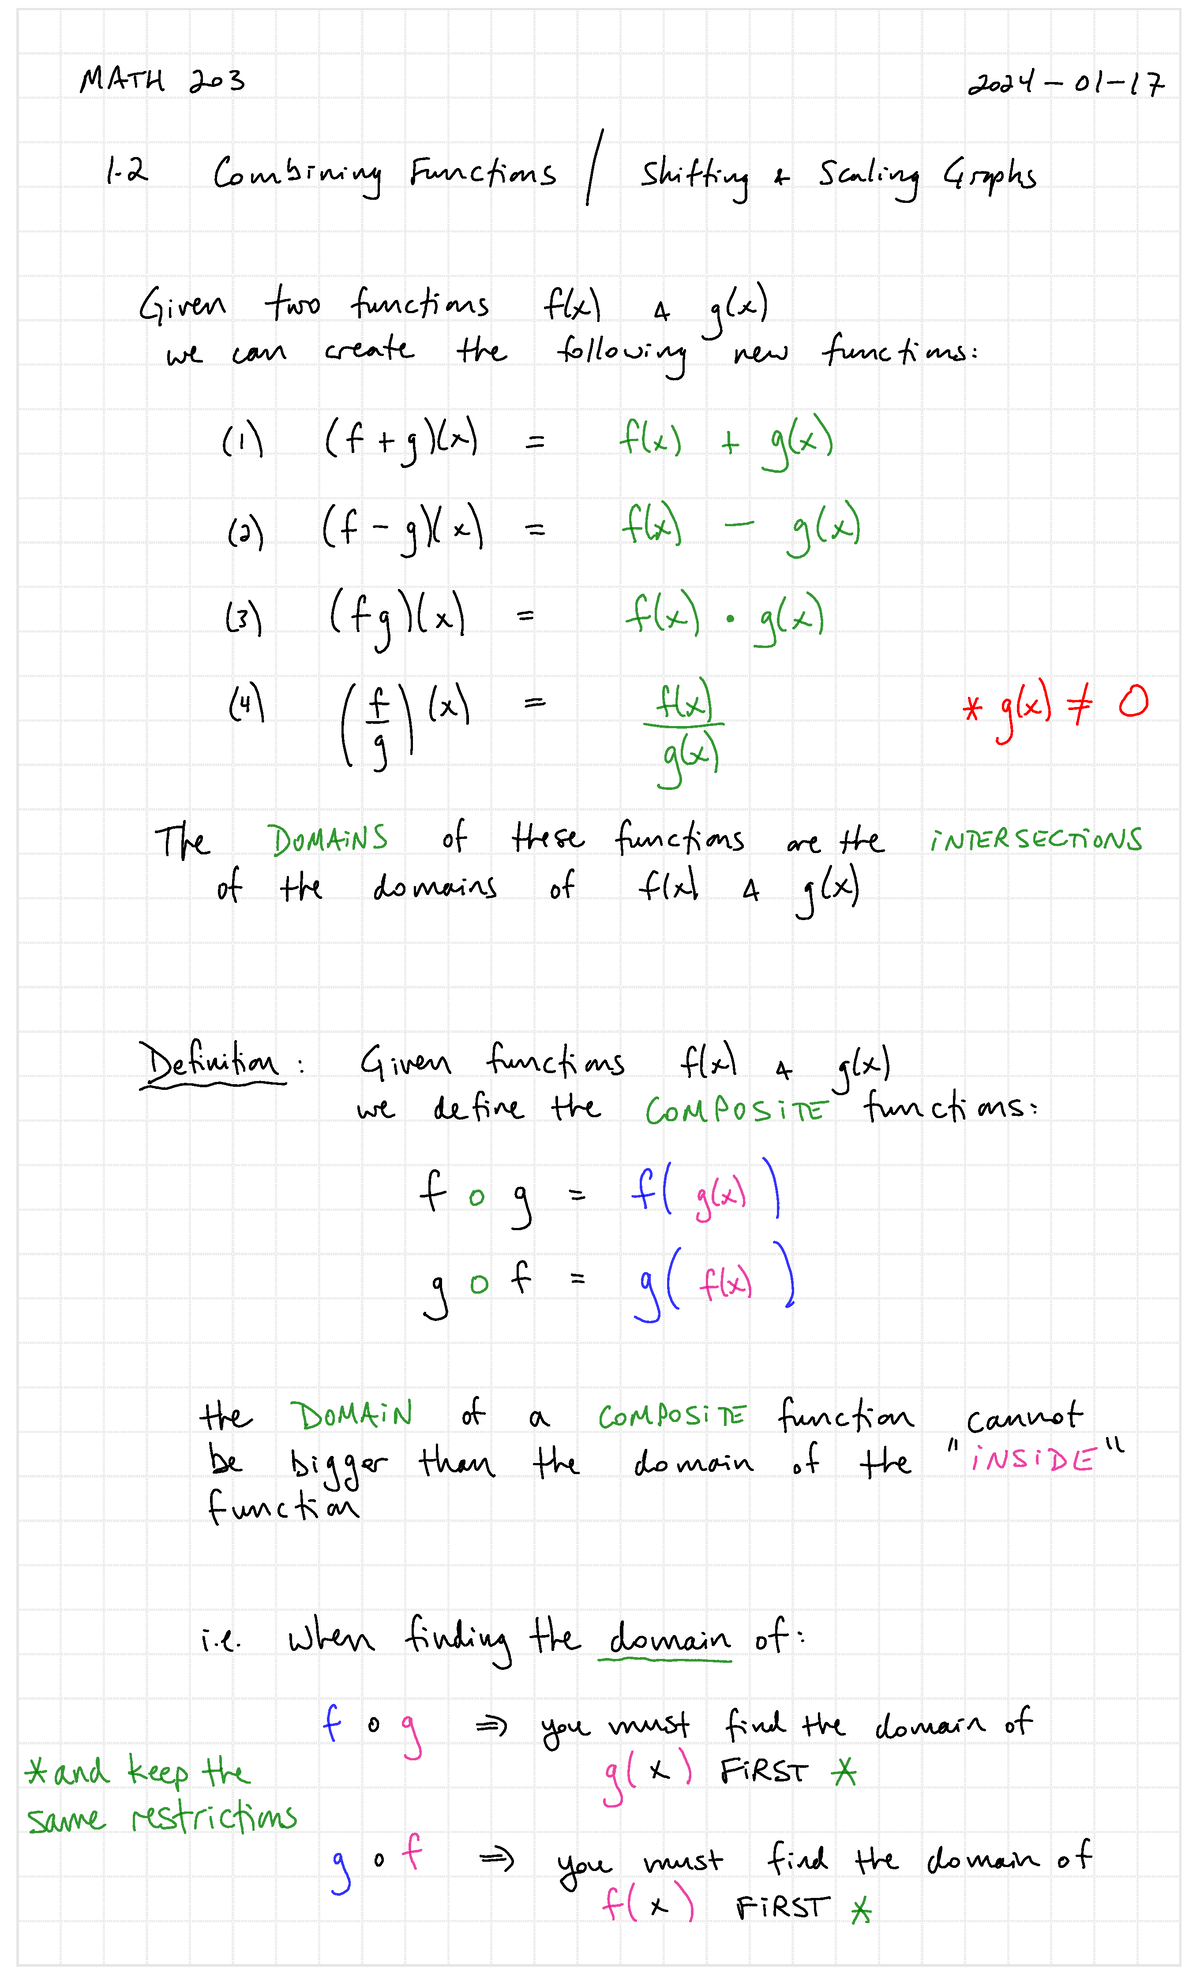 MATH 203
2024-01-17
1.2 Combining Functions / Shifting & Scaling Graphs
Given two functions f(x) & g(x)
we can create the following new functions:
(1) (f+g)(x) = f(x) + g(x)
(2) (f-g)(x) = f(x) - g(x)
(3) (fg)(x) = f(x) · g(x)
(4) (f/g)(x) = f(x)/g(x) * g(x) ≠ 0
The DOMAiNS of these functions are the iNTERSECTiONS
of the domains of f(x) & g(x)
Definition: Given functions f(x) & g(x)
we define the COMPOSiTE functions:
f ∘ g = f( g(x) )
g ∘ f = g( f(x) )
the DOMAiN of a COMPOSiTE function cannot
be bigger than the domain of the "iNSiDE"
function
i.e. when finding the domain of:
f ∘ g ⇒ you must find the domain of
g(x) FiRST *
*and keep the
same restrictions
g ∘ f ⇒ you must find the domain of
f(x) FiRST *